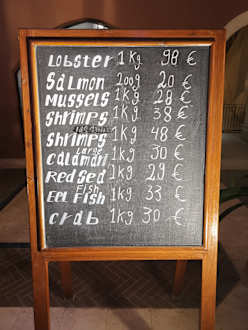 Lobster 1 Kg 98 €
Salmon 200g 20 €
Mussels 1 Kg 28 €
shrimps 1 Kg 38 €
medium
shrimps 1 Kg 48 €
Large
calamari 1 Kg 30 €
Red sed 1 Kg 29 €
Fish
EEL Fish 1 Kg 33 €
crab 1 Kg 30 €